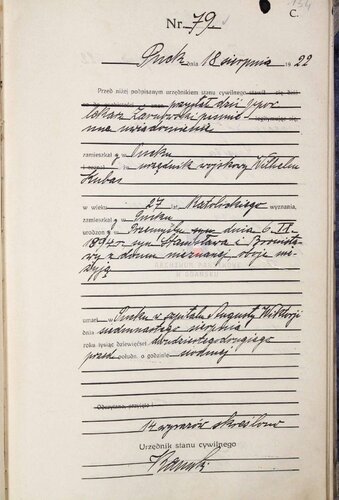 Nr. 79
C.
Puck dnia 18 sierpnia 1922
Przed niżej podpisanym urzędnikiem stanu cywilnego stawił się dziś
przysłał dziś
lekarz Żarnowski
zawiadomienie
zamieszkał w Pucku
urzędnik wojskowy Wilhelm
Kubas
w wieku 27 lat Katolickiego wyznania,
zamieszkał w Pucku
urodzon y w Przemyślu dnia 6. VI.
1894 r. syn Stanisława i Bronisła-
wy z domu nieznanej oboje nie
żyją
ARCHIWUM PAŃSTWOWE
W GDAŃSKU
umarł w Pucku w szpitalu Augusty Wiktorji
dnia siedmnastego sierpnia
roku tysiąc dziewięćset dwudziestego drugiego
przed połudn. o godzinie
Odczytano, przyjęto i
14 wyrazów skreślono
Urzędnik stanu cywilnego